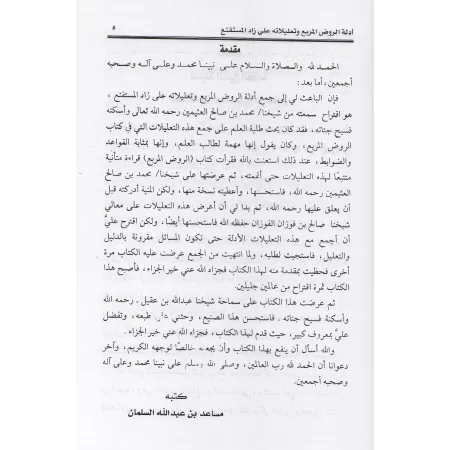 أدلة الروض المربع وتعليلاته على زاد المستقنع
٥
مقدمة
الحمد لله والصلاة والسلام على نبينا محمد وعلى آله وصحبه
أجمعين، أما بعد:
فإن الباعث لي إلى جمع أدلة الروض المربع وتعليلاته على زاد المستقنع ،
هو اقتراح سمعته من شيخنا/ محمد بن صالح العثيمين رحمه الله تعالى وأسكنه
فسيح جناته. فقد كان يحث طلبة العلم على جمع هذه التعليلات التي في كتاب
الروض المربع، وكان يقول إنها مهمة لطالب العلم، وإنها بمثابة القواعد
والضوابط، عند ذلك استعنت بالله فقرأت كتاب (الروض المربع) قراءة متأنية
متتبعًا لهذه التعليلات حتى أتممته، ثم عرضتها على شيخنا/ محمد بن صالح
العثيمين رحمه الله، فاستحسنها، وأعطيته نسخة منها، ولكن المنية أدركته قبل
أن يعلق عليها رحمه الله، ثم بدا لي أن أعرض هذه التعليلات على معالي
شيخنا صالح بن فوزان الفوزان حفظه الله فاستحسنها أيضًا، ولكن اقترح عليّ
أن أجمع مع هذه التعليلات الأدلة حتى تكون المسائل مقرونة بالدليل
والتعليل، فاستجبت لطلبه، ولما انتهيت من الجمع عرضت عليه الكتاب مرة
أخرى فحظيت بمقدمة منه لهذا الكتاب فجزاه الله عني خير الجزاء، فأصبح هذا
الكتاب ثمرة اقتراح من عالمين جليلين.
ثم عرضت هذا الكتاب على سماحة شيخنا عبدالله بن عقيل ـ رحمه الله
وأسكنه فسيح جناته ـ فاستحسن هذا الصنيع، وحثني طبعه، وتفضل
عليّ بمعروف كبير، حيث قدم لهذا الكتاب، فجزاه الله عني خير الجزاء.
والله أسأل أن ينفع بهذا الكتاب وأن يجعله خالصًا لوجهه الكريم، وآخر
دعوانا أن الحمد لله رب العالمين، وصلى الله وسلم على نبينا محمد وعلى آله
وصحبه أجمعين.
كتبه
مساعد بن عبدالله السلمان